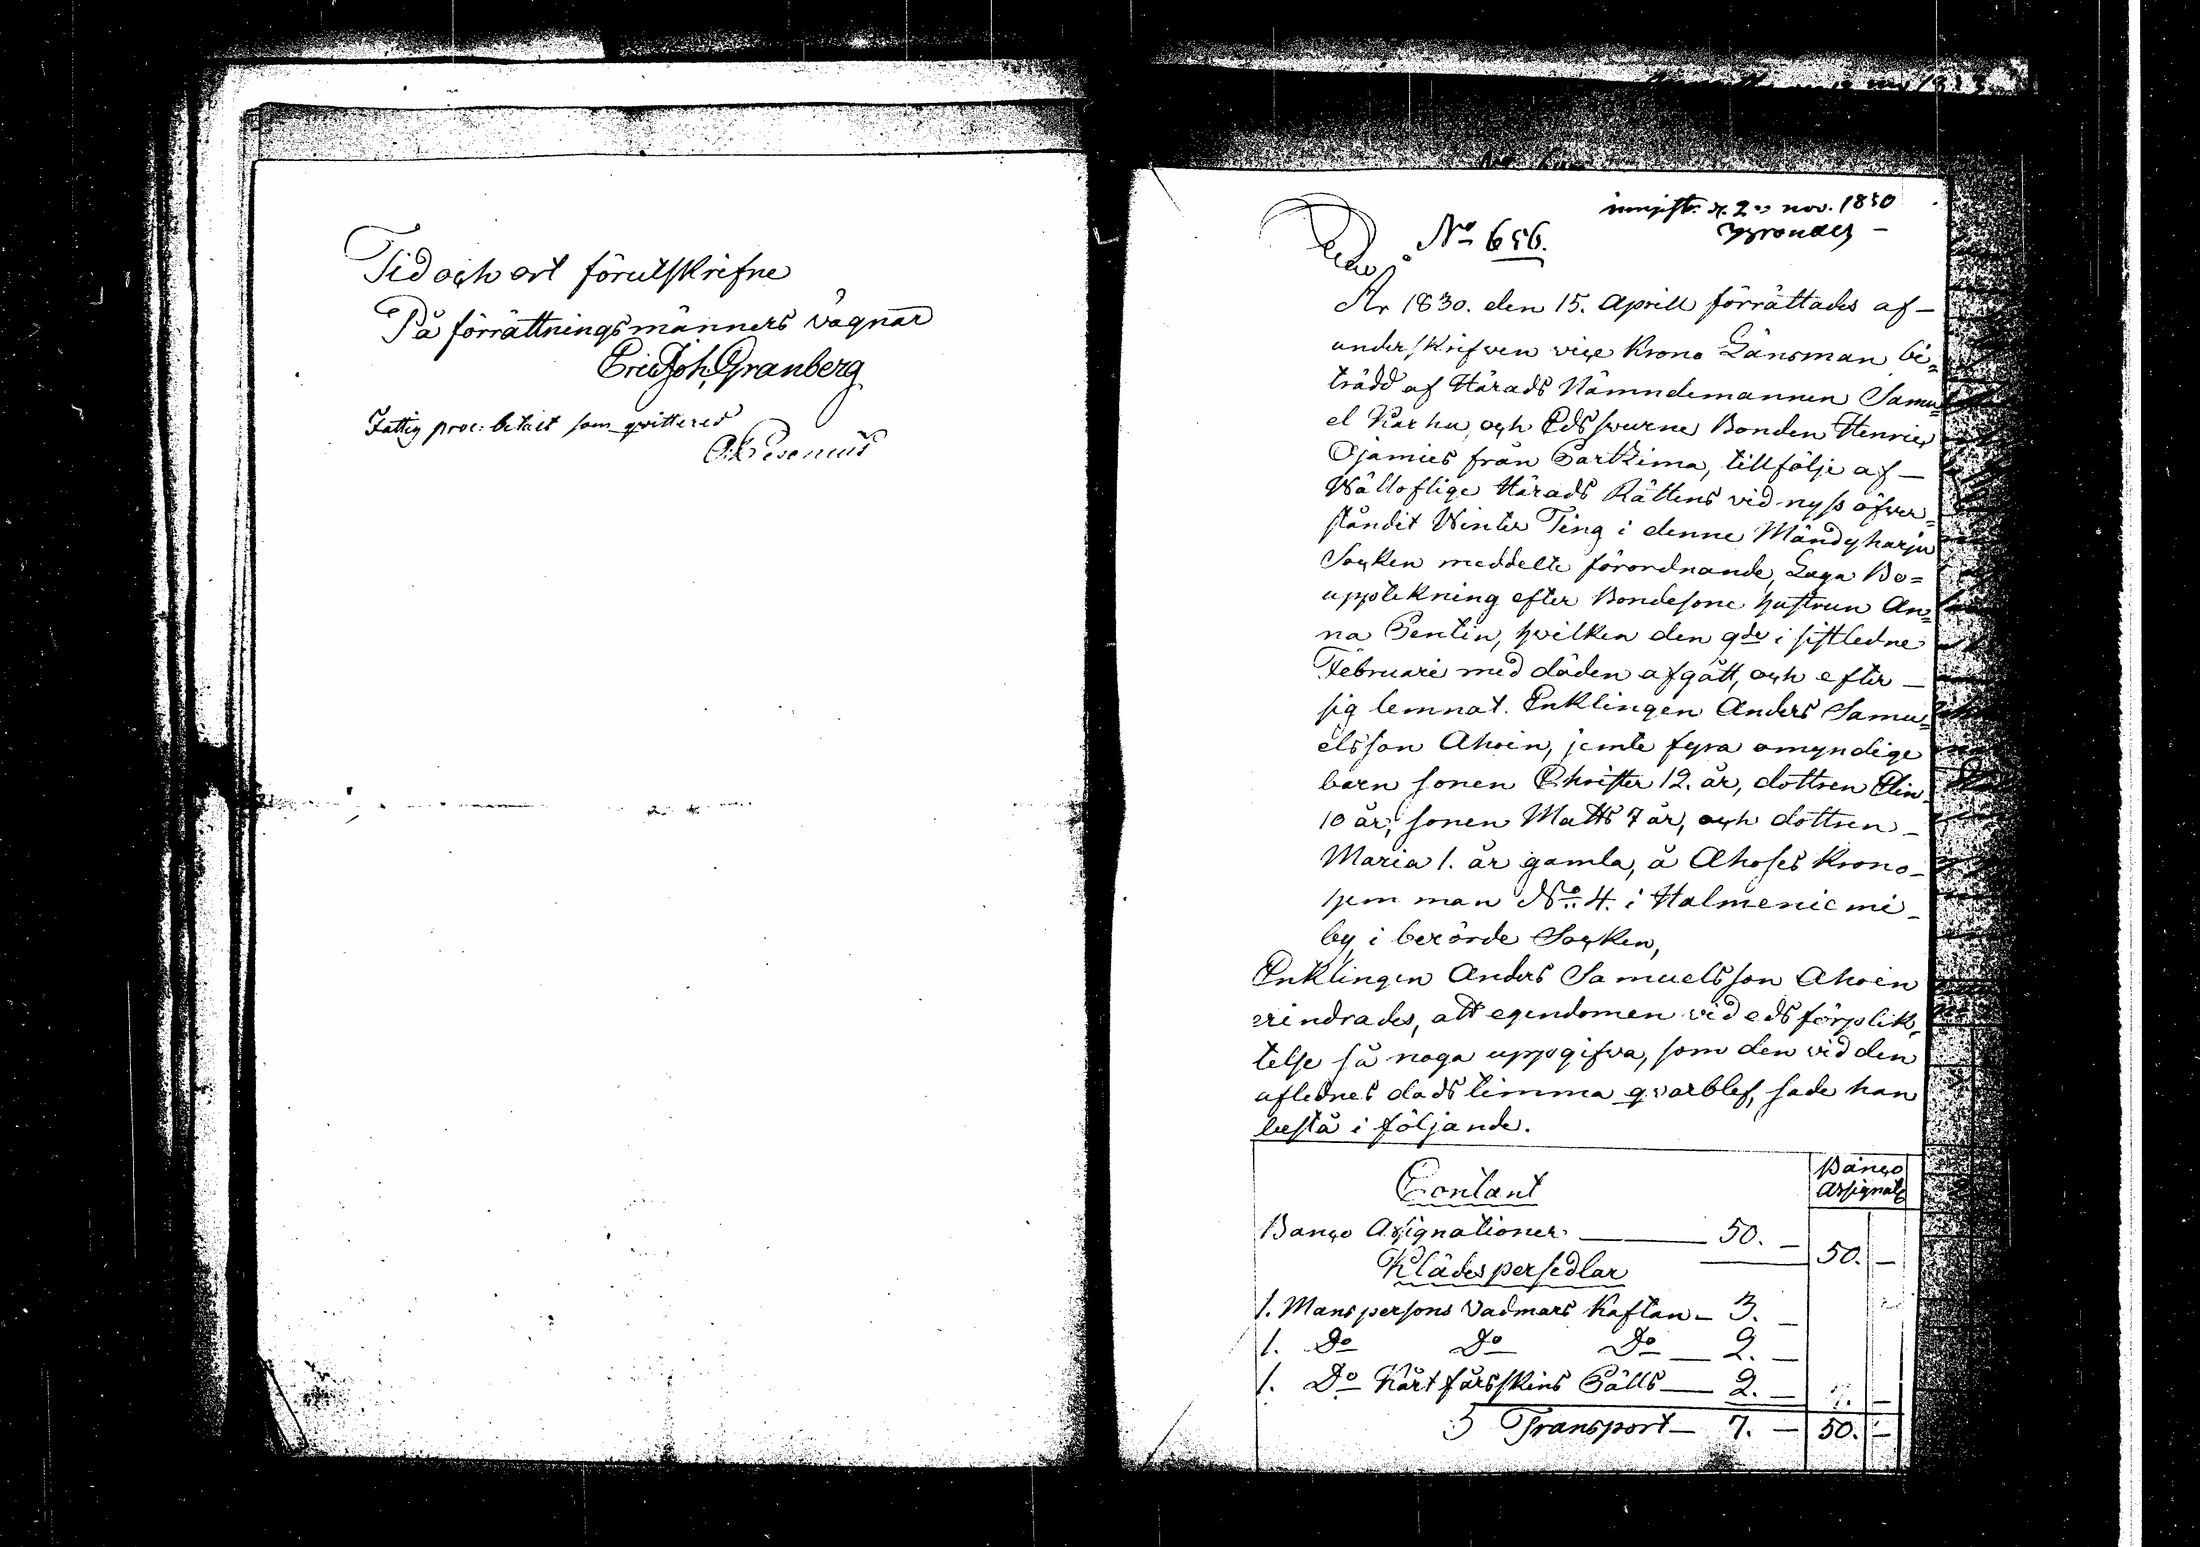 Tid och ort förutskrifne
På förrättningsmänners vägnar
Eric Joh. Granberg
Fattig proc: betalt som qvittered
ingift. d. 2 nov. 1830
No 656.
År 1830. den 15. Aprill förrättades af
underskrifven vice Krono Länsman bi=
trädd af Härads Nämndemannen Samu=
el Karhu, och Edsvurne Bonden Henric
Ojamies från Partzima, tillfölje af
Välloflige Härads Rättens vid nyss öfver=
ståndit Winter Ting i denne Mändyharju
Socken meddelte förordnande, Laga Bo=
uppteckning efter Bondesone hustrun An=
na Pentin, hvilken den 9de i sistledne
Februari med döden afgått, och efter
sig lemnat Enklingen Anders Samu=
elsson Ahoin, jemte fyra omyndige
barn sonen Christer 12. år, dottren Elin
10 år, sonen Matts 7 år, och dottren
Maria 1. år gamla, å Ahoses Krono
hemman No. 4. i Halmeniemi
by i berörde Socken,
Enklingen Anders Samuelsson Ahoin
erindrades, att egendomen vid eds förplik=
telse så noga uppgifva, som den vid den
aflednes döds timma qvarblef, sade han
bestå i följande.
Contant
Banco Assignats
Banco Assignationer 50. — 50. —
Klädespersedlar
1. Manspersons Vadmars Kaftan — 3. —
1. Do Do Do — 2. —
1. Do Kårt fårsskins Pälls — 2. —
Transport — 7. — 50. —